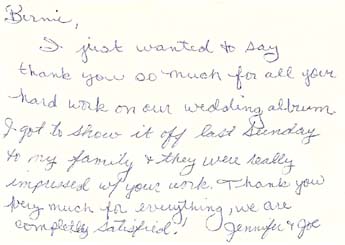 Bernie,
I just wanted to say
thank you so much for all your
hard work on our wedding album.
I got to show it off last Sunday
to my family & they were really
impressed w/ your work. Thank you
very much for everything, we are
completely satisfied! Jennifer & Joe